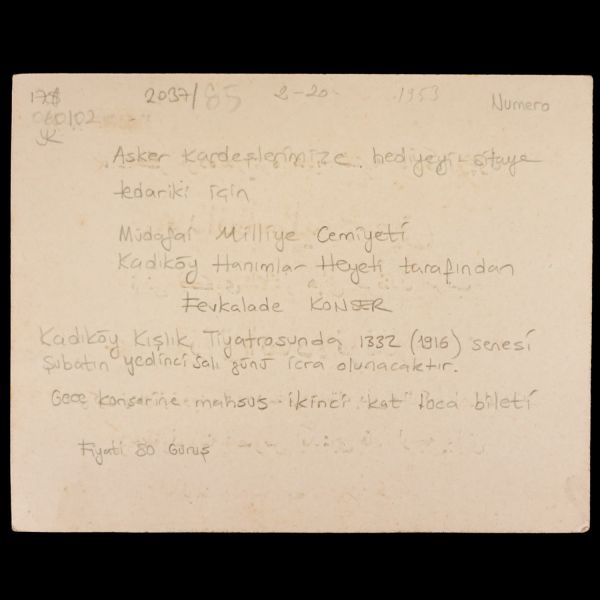 2037/85 2-20 1953 Numero
060102
Asker Kardeşlerimize hediyeyi-şitaye
tedariki için
Müdafai Milliye Cemiyeti
Kadıköy Hanımlar Heyeti tarafından
Fevkalade KONSER
Kadıköy Kışlık Tiyatrosunda 1332 (1916) senesi
Şubatın yedinci salı günü icra olunacaktır.
Gece konserine mahsus ikinci kat loca bileti
Fiyati 80 Guruş